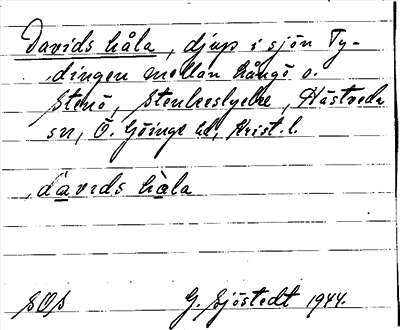 Davids håla, djup i sjön Ty-
dingen mellan Långö o.
Stenö, Stenkeslycke, Hästveda
sn, Ö. Göinge hd, Krist. l.
davids håla
SOS G. Sjöstedt 1944.